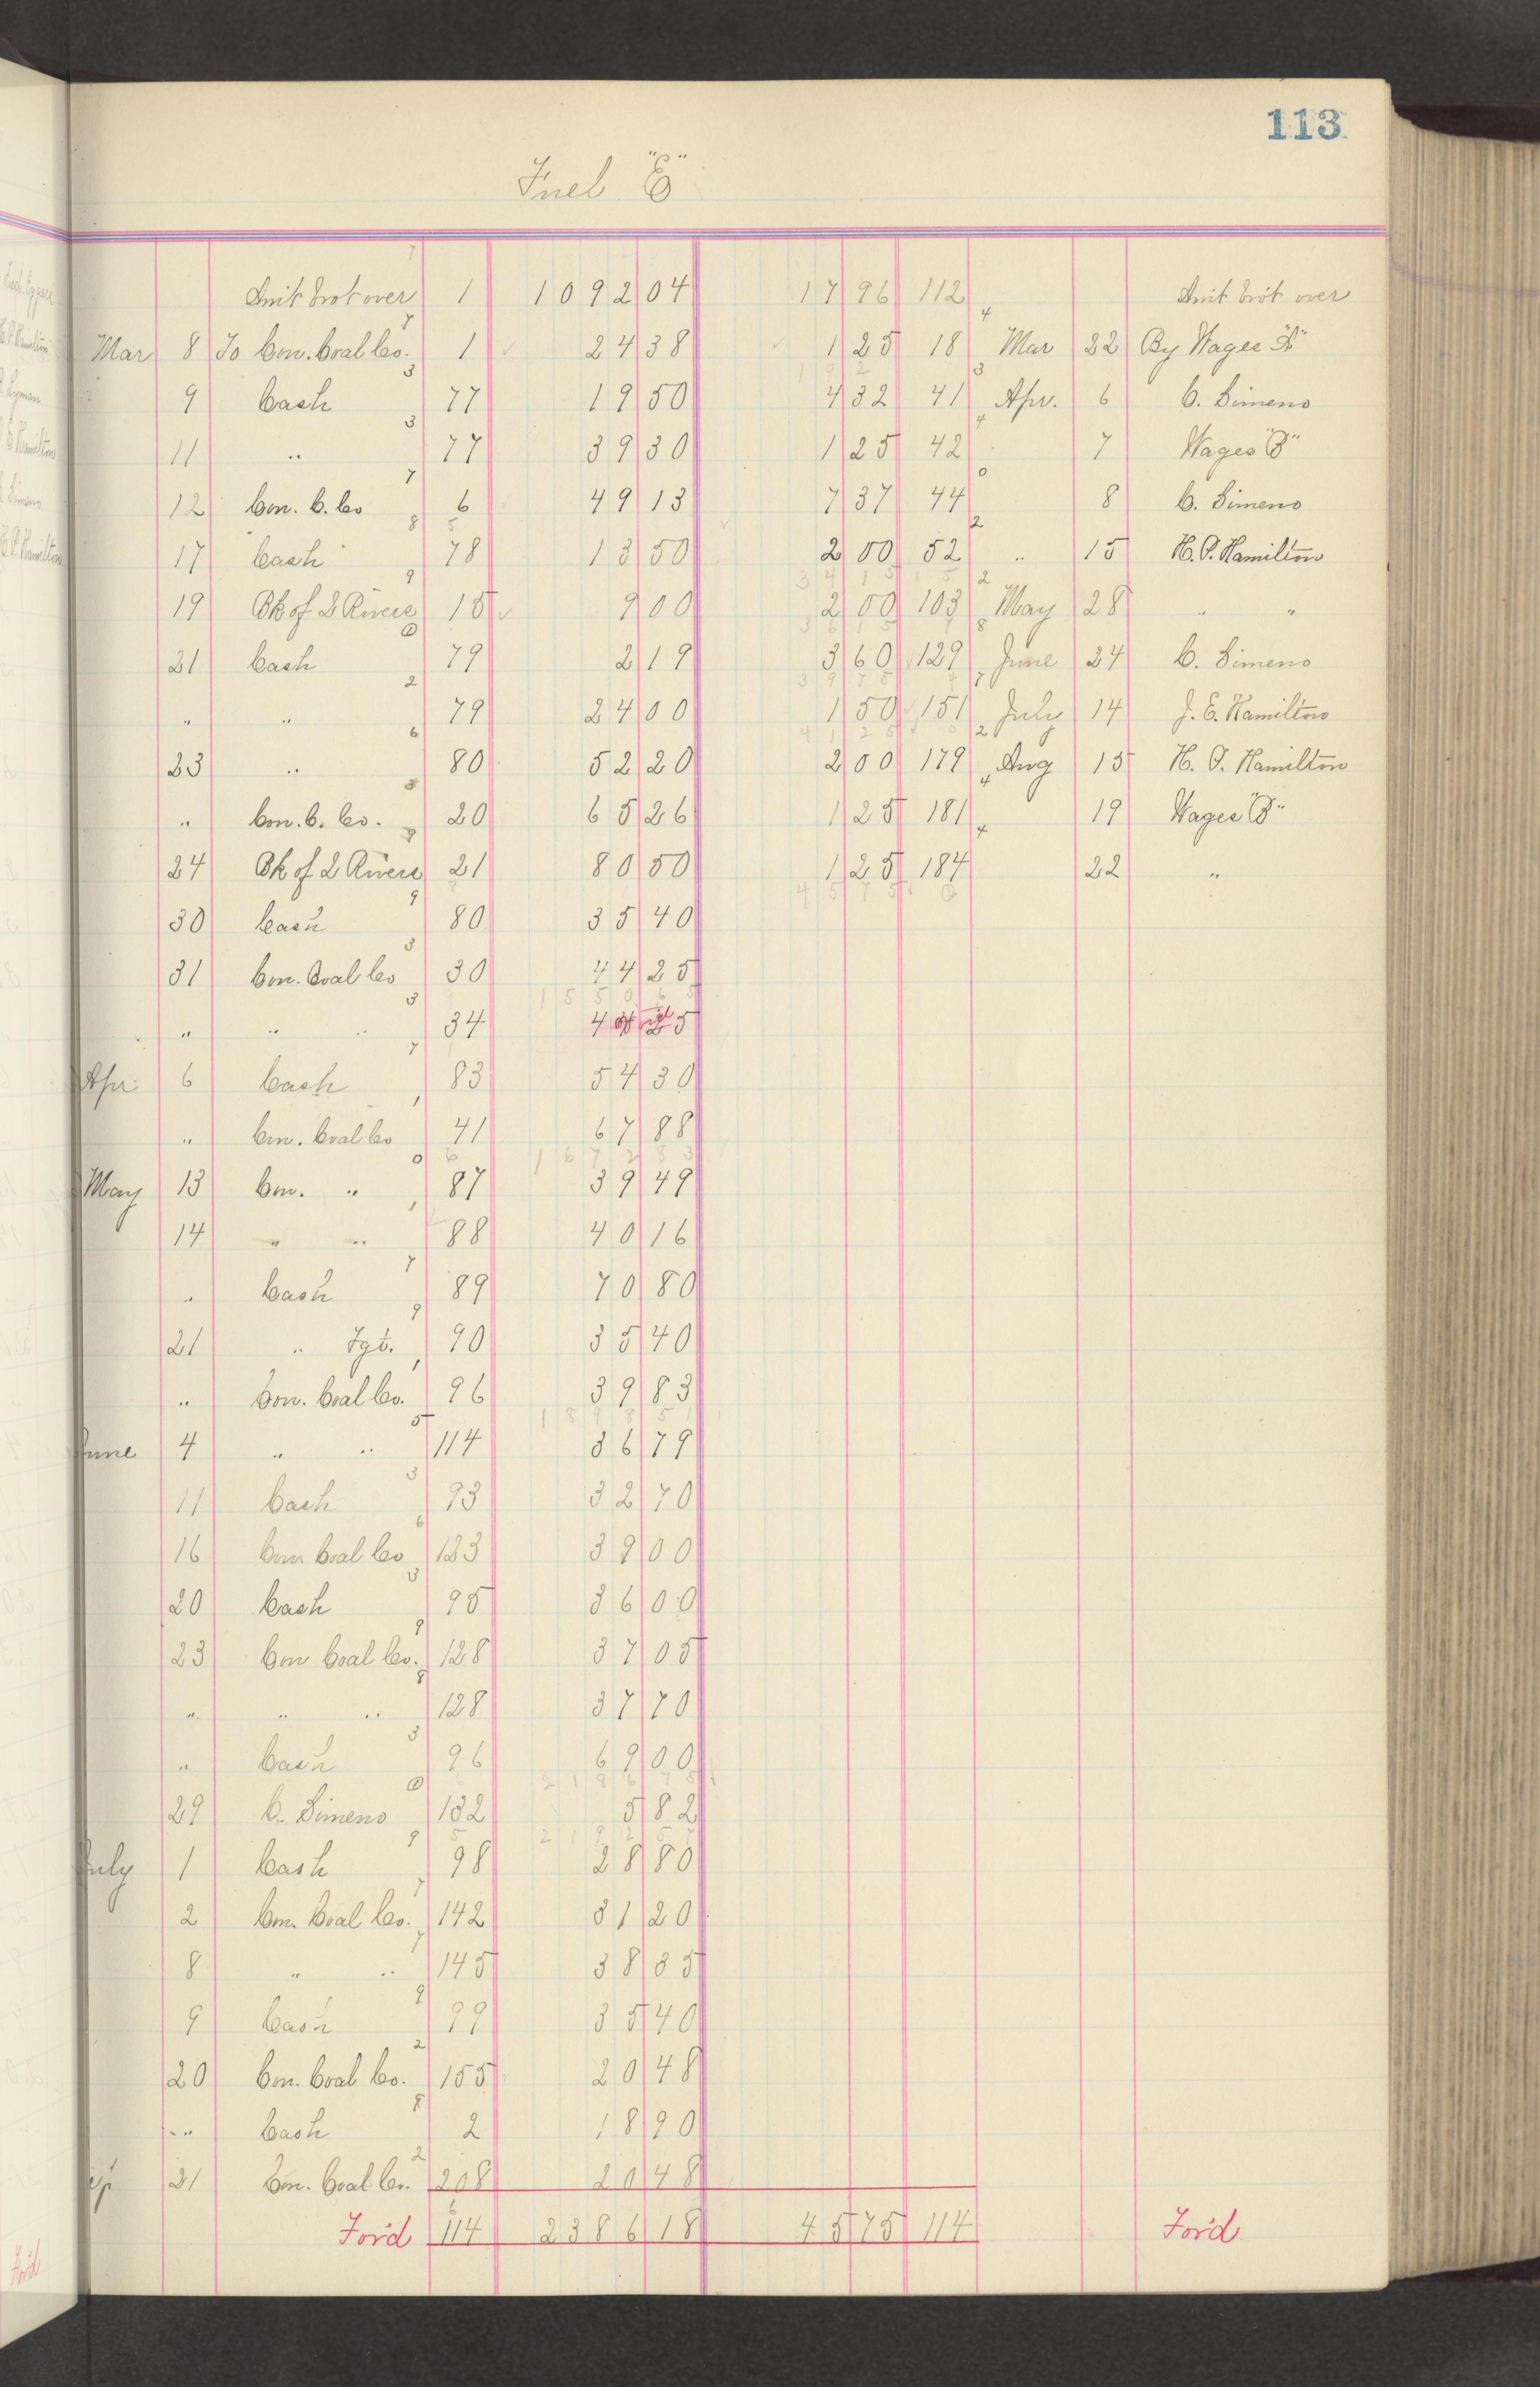 113
Fuel "E"
Amt brot over 1 1092 04 17 96 112 Amt brot over
Mar 8 To Con. Coal Co. 1 24 38 1 25 18 Mar 22 By Wages "A"
9 Cash 77 19 50 4 32 41 Apr. 6 C. Simeno
11 " 77 39 30 1 25 42 7 Wages "B"
12 Con. C. Co 6 49 13 7 37 44 8 C. Simeno
17 Cash 78 13 50 2 00 52 " 15 H. P. Hamilton
19 Bk of 2 Rivers 15 9 00 2 00 103 May 28 " "
21 Cash 79 2 19 3 60 129 June 24 C. Simeno
" " 79 24 00 1 50 151 July 14 J. E. Hamilton
23 " 80 52 20 2 00 179 Aug 15 H. P. Hamilton
" Con. C. Co. 20 65 26 1 25 181 19 Wages "B"
24 Bk of 2 Rivers 21 80 50 1 25 184 22 "
30 Cash 80 35 40
31 Con. Coal Co 30 44 25
" " " 34
Apr 6 Cash 83 54 30
" Con. Coal Co 41 67 88
May 13 Con. " 87 39 49
14 " " 88 40 16
" Cash 89 70 80
21 " Fgt. 90 35 40
" Con. Coal Co. 96 39 83
June 4 " " 114 36 79
11 Cash 93 32 70
16 Con Coal Co 123 39 00
20 Cash 95 36 00
23 Con Coal Co. 128 37 05
" " " 128 37 70
" Cash 96 69 00
29 C. Simeno 132 5 82
July 1 Cash 98 28 80
2 Con. Coal Co. 142 31 20
8 " " 145 38 35
9 Cash 99 35 40
20 Con. Coal Co. 155 20 48
" Cash 2 18 90
31 Con. Coal Co. 208 20 48
For'd 114 2386 18 45 75 114 For'd